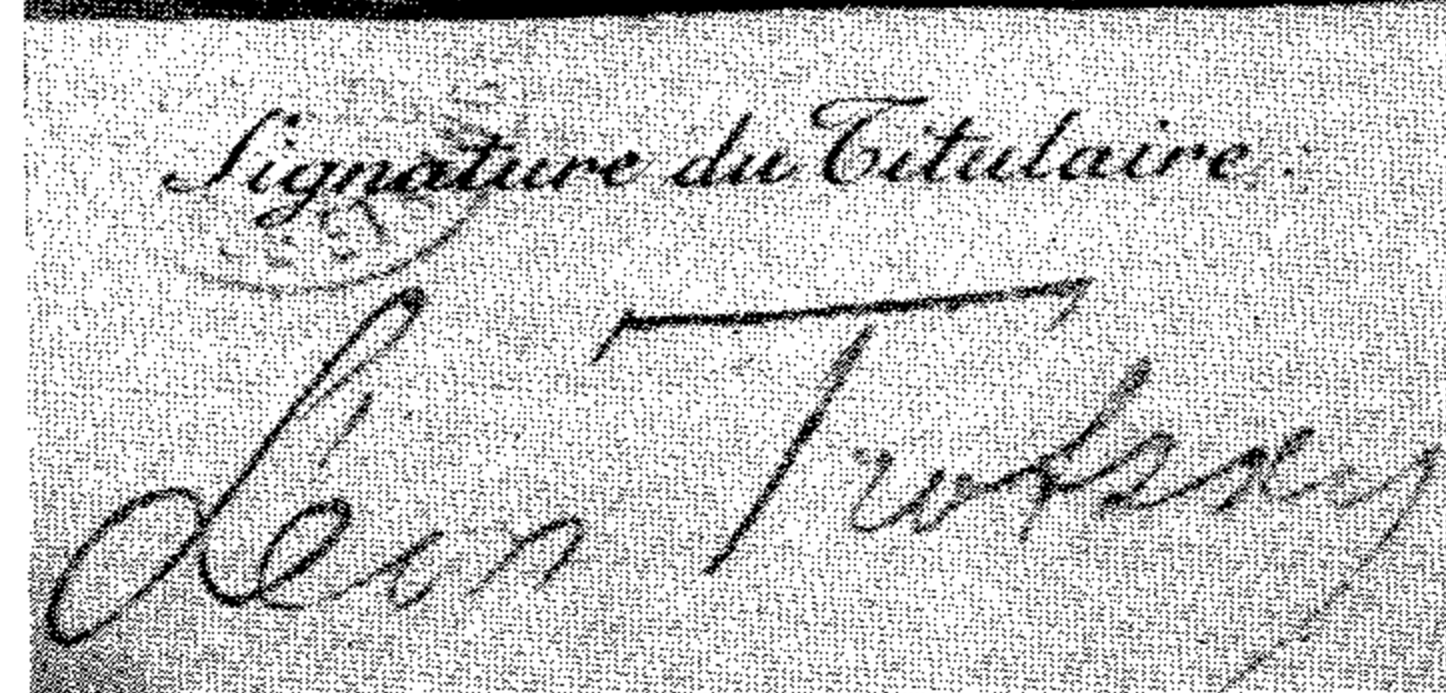 Signature du Titulaire :
Léon Trotsky